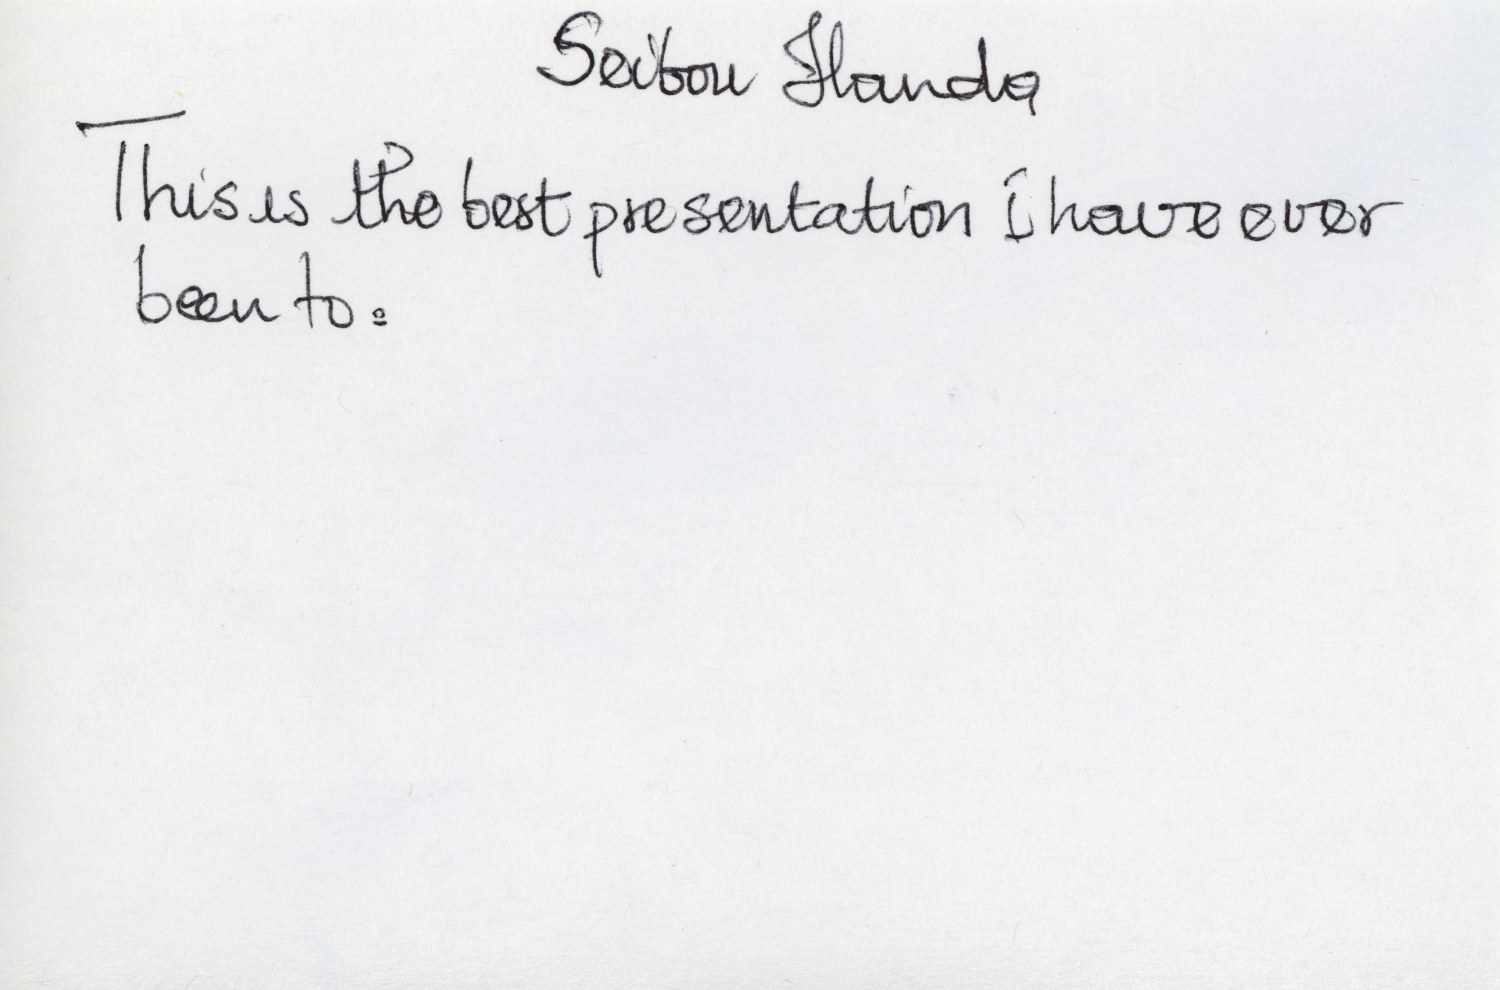 Seibou Handa
This is the best presentation I have ever
been to.